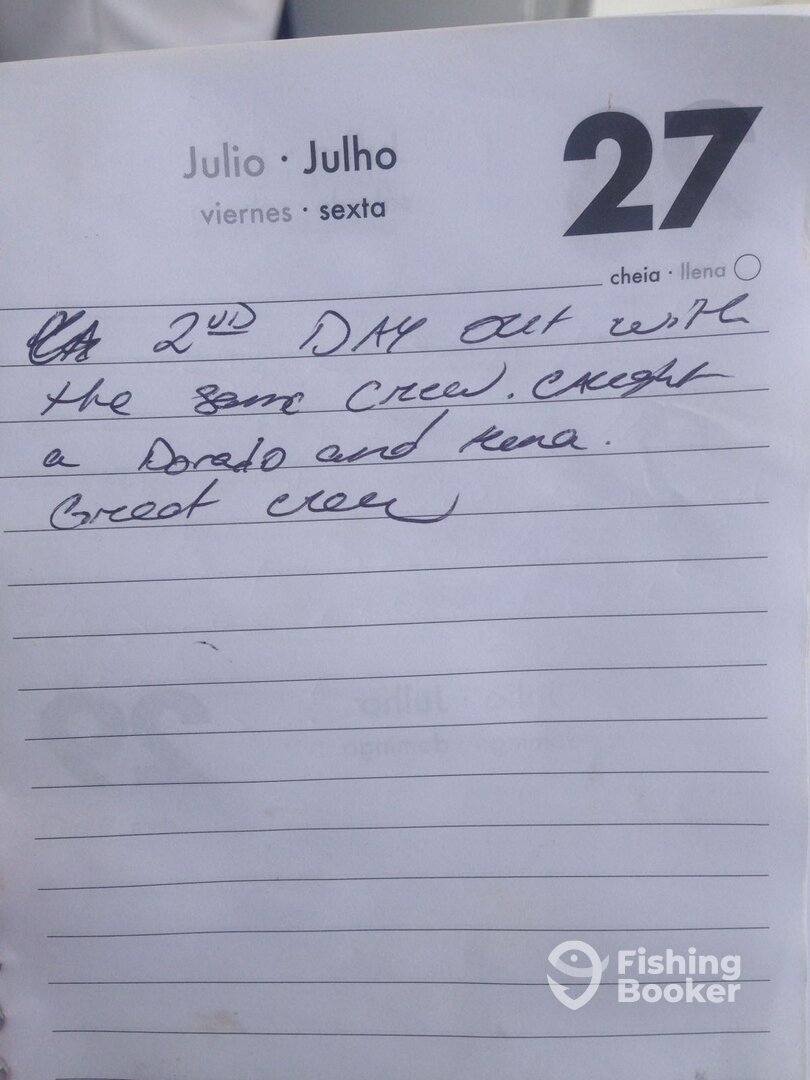 Julio · Julho
27
viernes · sexta
cheia · llena
2ND DAY out with
the same crew. caught
a Dorado and
Great crew
Fishing
Booker